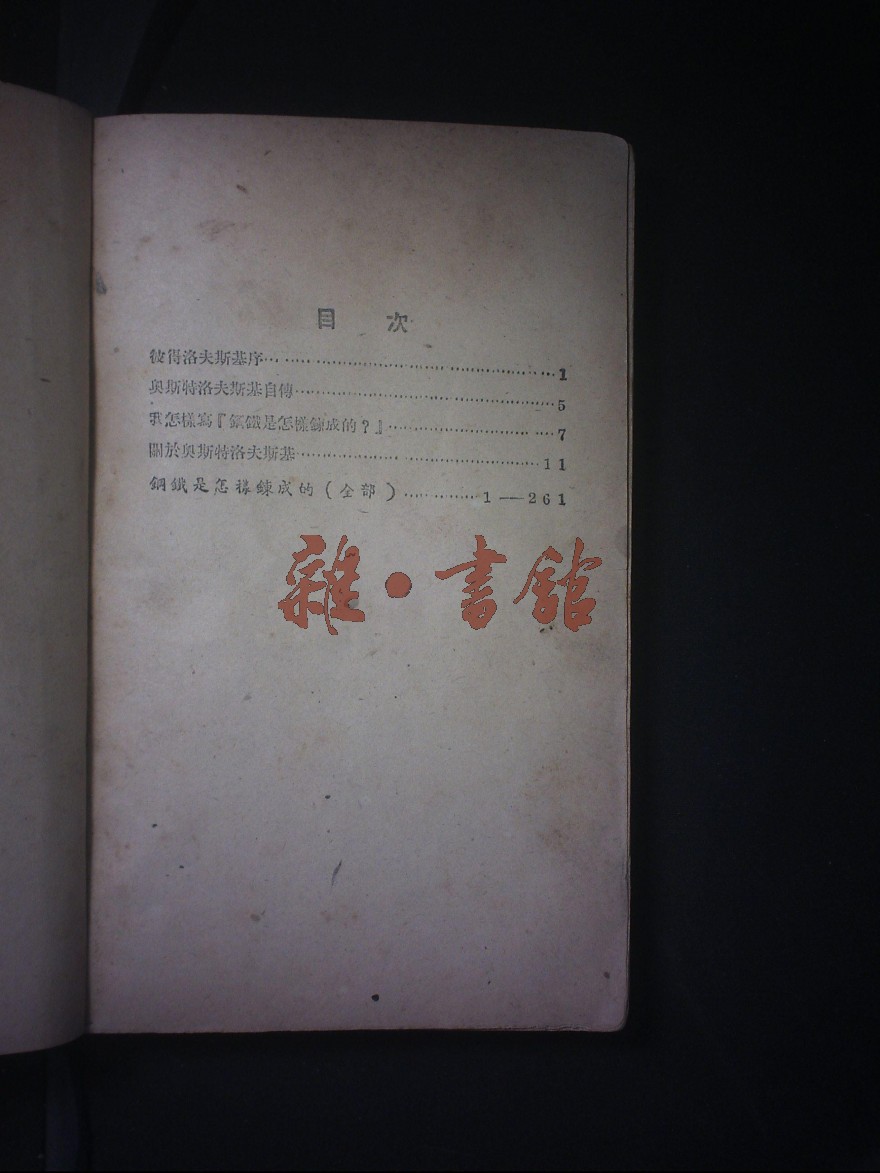 目 次
彼得洛夫斯基序 1
奥斯特洛夫斯基自傳 5
我怎樣寫『鋼鐵是怎樣鍊成的？』 7
關於奥斯特洛夫斯基 11
鋼鐵是怎樣鍊成的(全部) 1—261
雜·書舘